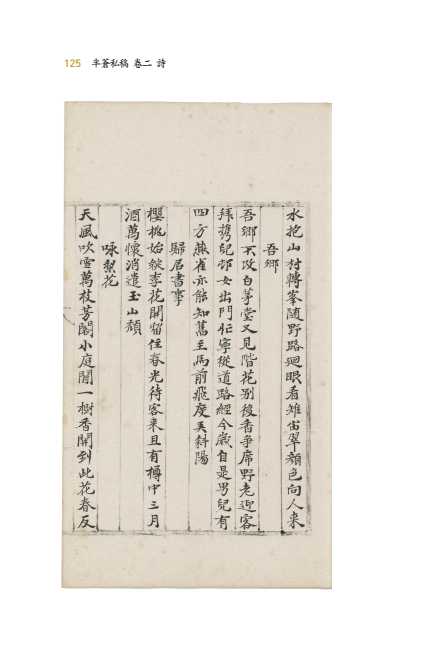 125 半蒼私稿 卷二 詩
水抱山村轉峯隨野路廻眼看雉岳翠顔色向人来
吾鄉
吾鄉不改白茅堂又見階花別後香爭席野老迎客
拜携兒邨女出門忙寧從道路經今歲自是男兒有
四方燕雀亦能知舊主馬前飛度美斜陽
歸居書事
櫻桃始綻李花開留住春光待客来且有樽中三月
酒萬懷消遣玉山頹
咏梨花
天風吹雪萬枝芳閣小庭閒一樹香開到此花春反